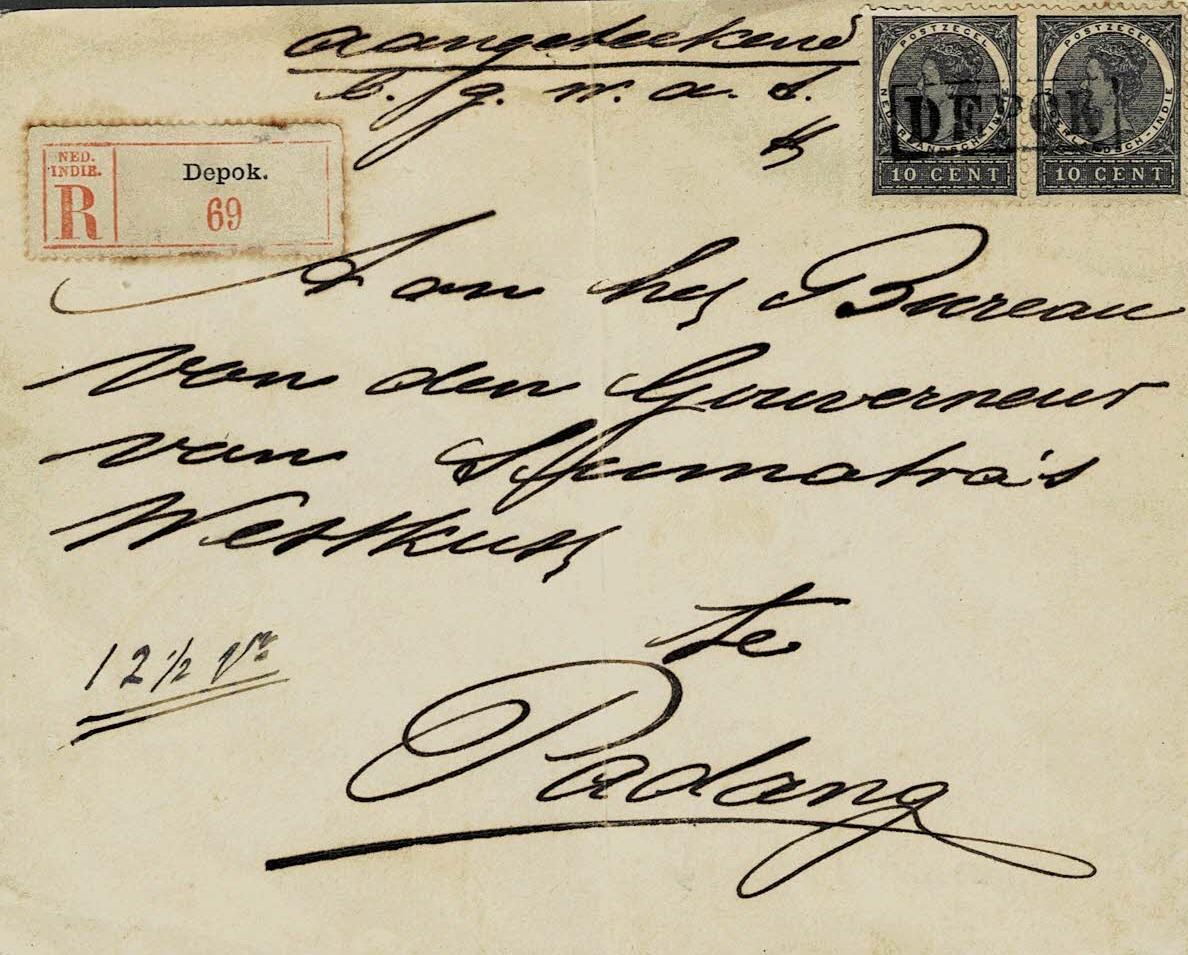 aangeteekend
b. g. w. a. s.
POSTZEGEL
NEDERLANDSCH-INDIE
10 CENT
POSTZEGEL
NEDERLANDSCH-INDIE
10 CENT
DEPOK
NED.
INDIE.
R
Depok.
69
Aan het Bureau
van den Gouverneur
van Sumatra's
Westkust
te
Padang
12½